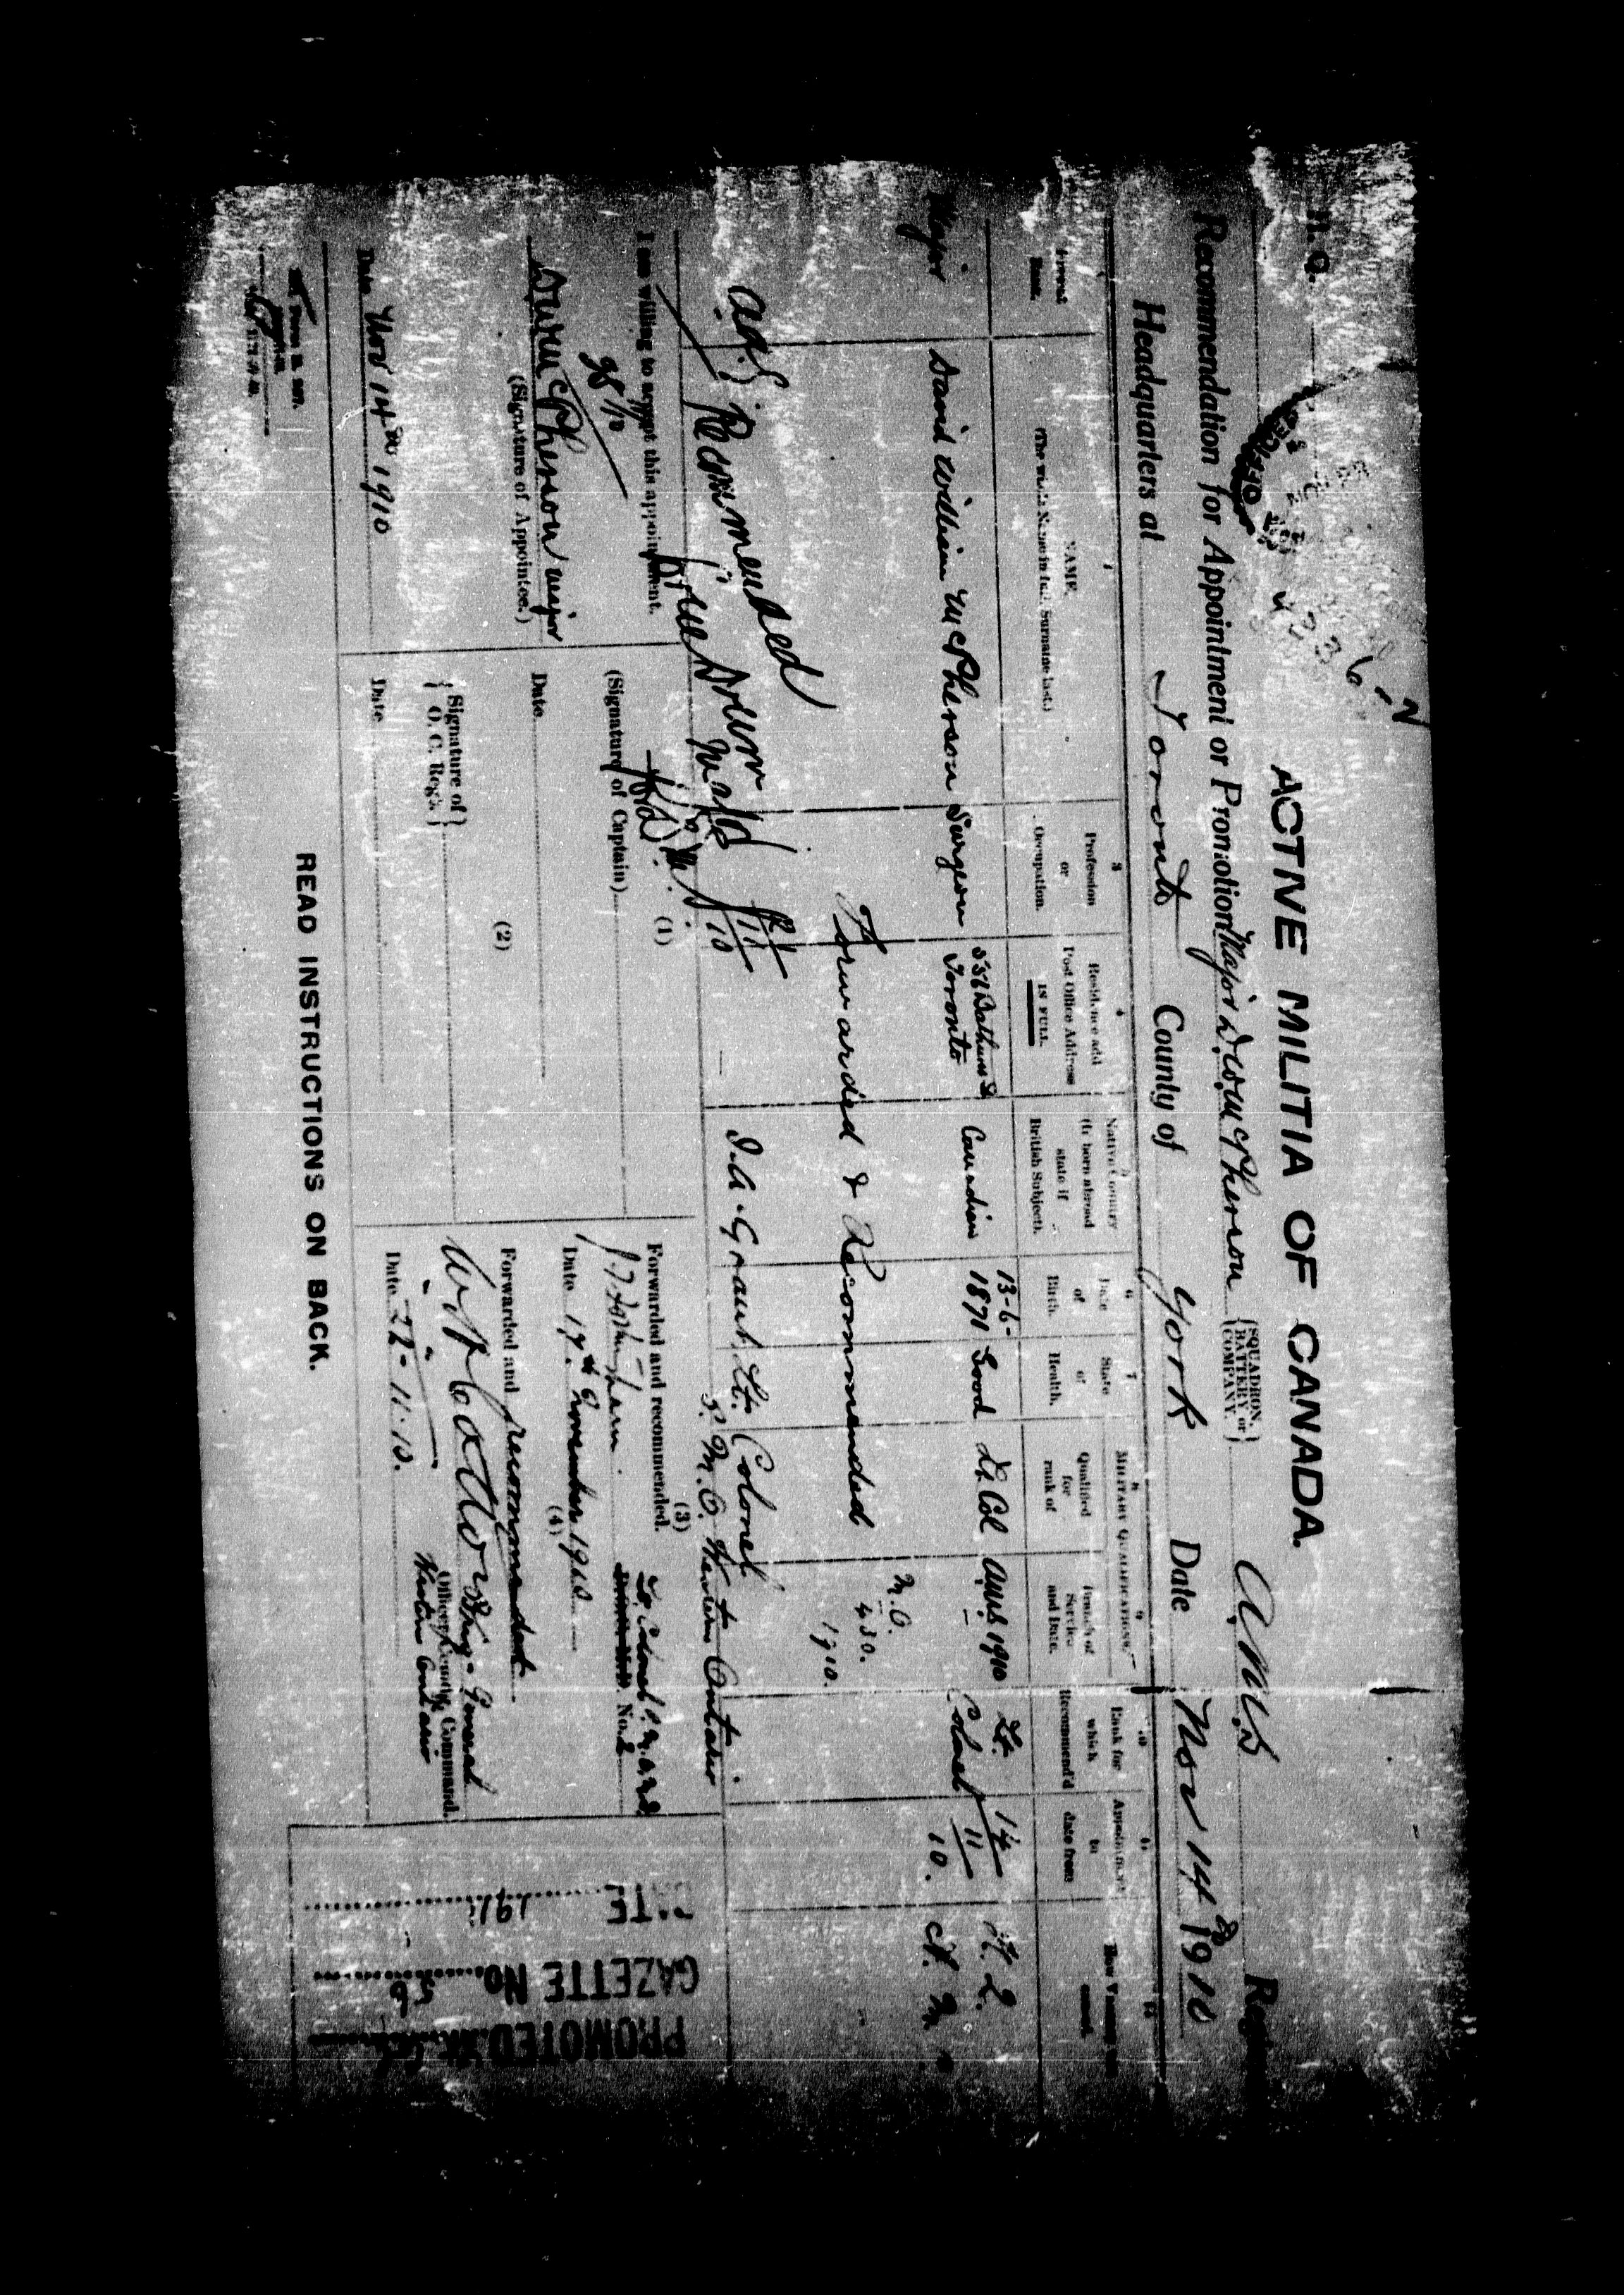 H. Q.
ACTIVE MILITIA OF CANADA.
Recommendation for Appointment or Promotion Major D. W. McPherson {SQUADRON, BATTERY or COMPANY.} A.M.S
Headquarters at Toronto County of York Date Nov 14th 1910
Present Rank.
NAME.
(The whole Name in full, Surname last.)
Profession or Occupation.
Residence and Post Office Address IN FULL.
Native Country (If born abroad state if British Subject).
Date of Birth.
State of Health.
MILITARY QUALIFICATIONS.
Qualified for rank of
Branch of Service and Date.
Rank for which Recommend'd
Appointment to date from
How Vacancy
Major David William McPherson Surgeon 556 Bathurst St Toronto Canadian 13-6-1871 Good Lt. Col AMS 1910 Lt. Colonel 14/11/10.
M.O. 430. 1910.
Forwarded & Recommended
I.A. Grant, Lt. Colonel
P. M. O. Western Ontario
Recommended
21/11/10
I am willing to accept this appointment.
D W McPherson Major
(Signature of Appointee.)
Date Nov 14th 1910
(1)
(Signature of Captain)
Date
(2)
{Signature of O. C. Reg't.}
Date
(3)
Forwarded and recommended.
No. 2
Date 17th November 1910
(4)
Forwarded and recommended
W H Cotton Brig-General
Officer Comd'g Command.
Western Ontario
Date 22-11-10.
PROMOTED
GAZETTE No. 56
DATE 191
READ INSTRUCTIONS ON BACK.